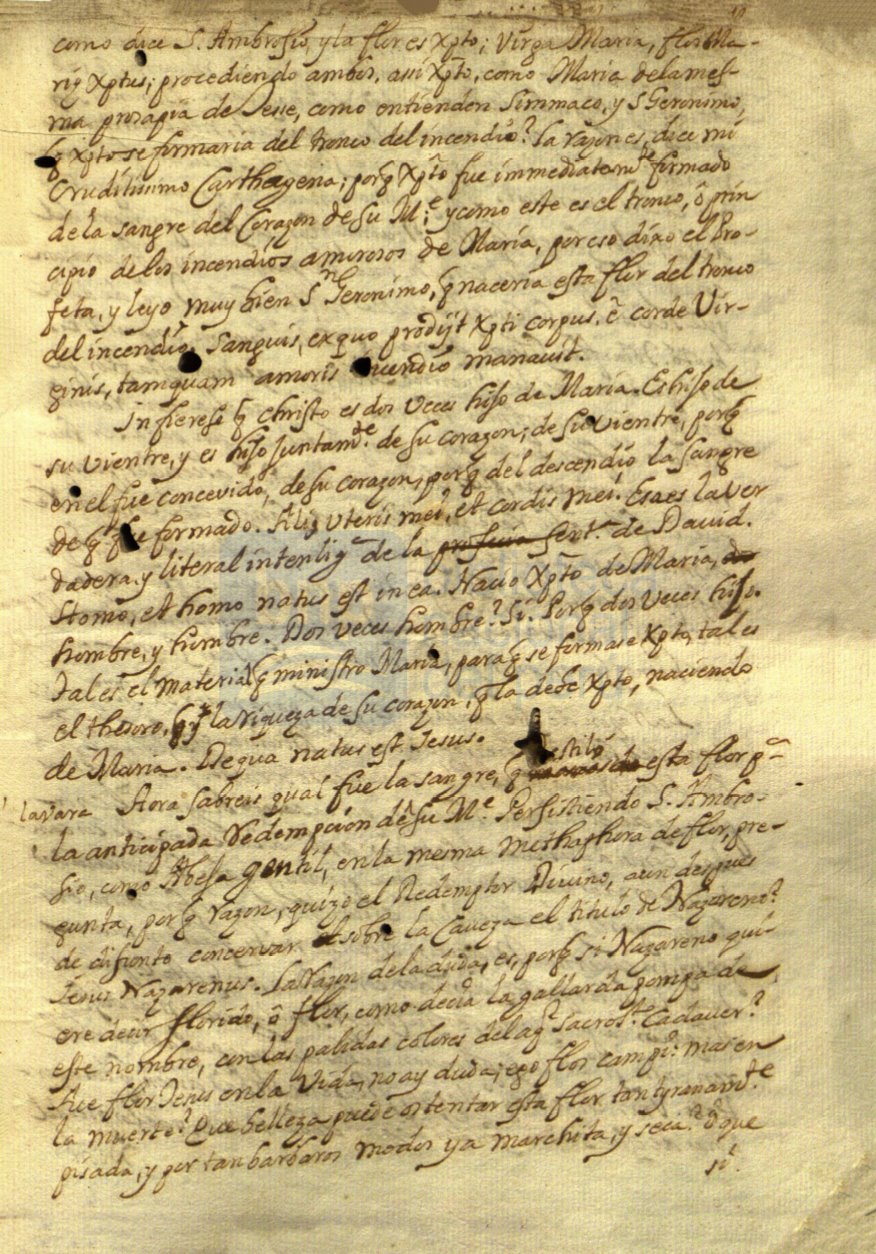 como dice S. Ambrosio, y la flor es Xpto; Virga Maria, flos Ma-
rię Xptus; procediendo ambos, assi Xp̃to, como Maria de la mes-
ma prosapia de Jesse, como entienden Simmaco, y S Geronimo,
q̃ Xpto se formaria del tronco del incendio? La razon es, dice mi
Eruditissimo Carthagena; porq̃ Xp̃to fue immediatamte formado
de la sangre del Corazon de su Me; y como este es el tronco, ò prin
cipio de los incendios amorosos de Maria, por eso dixo el Pro-
feta, y leyo muy bien Sn Geronimo, q̃ naceria esta flor del tronco
del incendio. Sanguis, ex quo prodijt Xpti corpus, è corde Vir-
ginis, tamquam amoris incendio manavit.
Infierese q̃ Christo es dos Veces hijo de Maria. Es hijo de
su Vientre, y es hijo juntamte de su corazon; de su Vientre, porq̃
en el fue concevido; de su corazon, porq̃ del descendio la sangre
de q̃ fue formado. Filij Uteris mei, et cordis mei. Esa es la Ver
dadera, y literal intenliga de la profecia Senta de David.
Homo, et homo natus est in ea. Nacio Xp̃to de Maria, do
hombre, y hombre. Dos veces hombre? Si. Porq̃ dos Veces hijo.
Tal es el material q̃ ministro Maria, para q̃ se formase Xpto, tal es
el thesoro, q̃ y la riqueza de su corazon, q̃ la debe Xpto, naciendo
de Maria. De qua natus est Jesus.
Aora sabreis qual fue la sangre, q̃ destiló esta flor pa
lavara
la anticipada Redempcion de su Me. Persistiendo S. Ambro-
sio, como Abeja gentil, en la mesma methaphora de flor, pre-
gunta, porq̃ razon, quizo el Redemptor Divino, aun despues
de difunto concervar sobre la Caveza el titulo de Nazareno?
Jesus Nazarenus. La razon de la duda, es, porq̃ si Nazareno qui-
ere decir florido, ô flor, como decia la gallarda pompa de
este nombre, con las palidas colores de aql sacrosto Cadaver?
Fue flor Jesus en la Vida, no ay duda; ego flos campi: mas en
la muerte? Que belleza puede ostentar esta flor tan tyranamte
pisada, y por tan barbaros modos ya marchita, y seca? ô que
si.